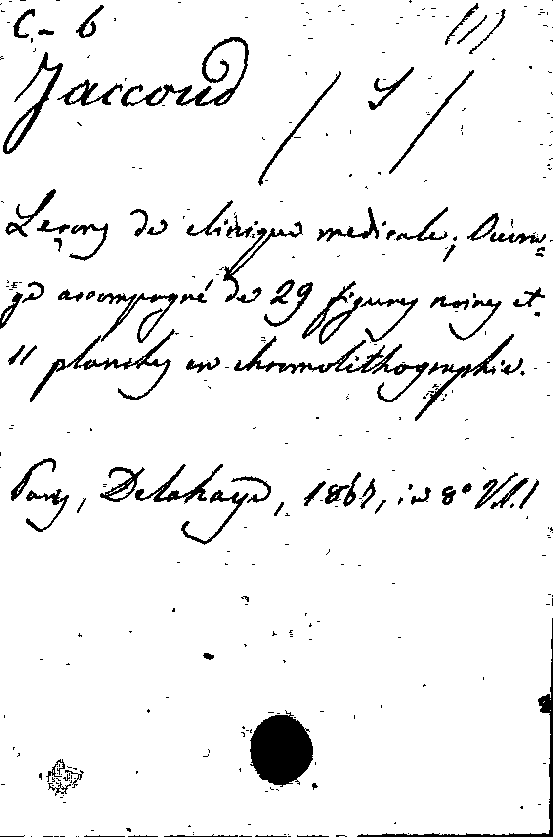 C-6 (1)
Jaccoud / S /
Leçons de clinique medicale; Ouvra=
ge accompagné de 29 figures noires et
11 planches en chromolithographie.
Paris, Delahaye, 1867, in 8° V.I.1